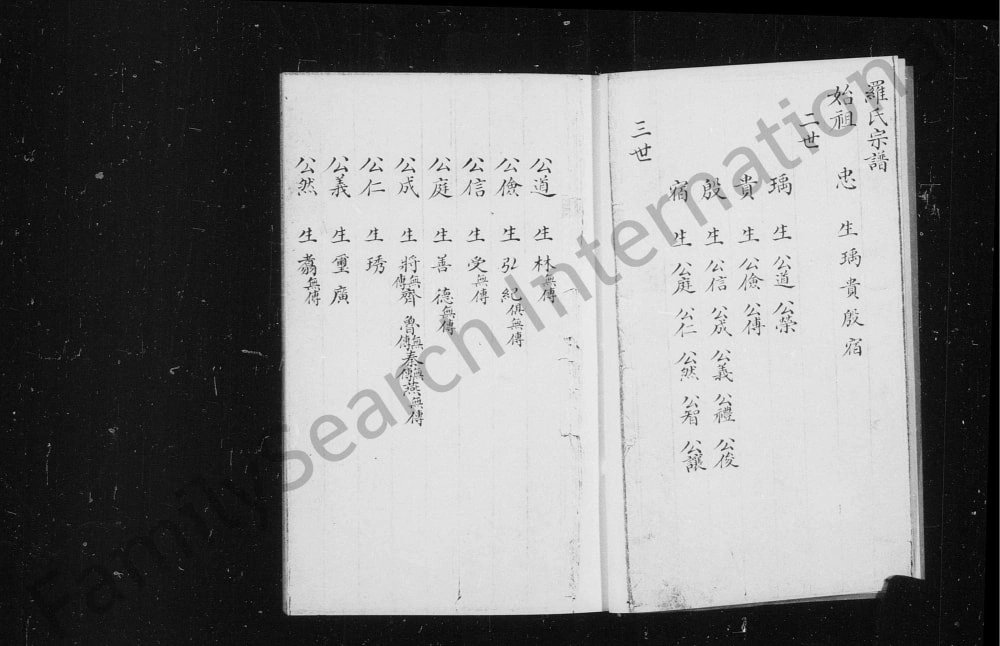 羅氏宗譜
始祖 忠 生瑀貴殷宿
二世
瑀 生 公道 公榮
貴 生 公儉 公傅
殷 生 公信 公成 公義 公禮 公俊
宿 生 公庭 公仁 公然 公智 公讓
三世
公道 生 林無傳
公儉 生 弘 紀俱無傳
公信 生 受無傳
公庭 生 善 德無傳
公成 生 將無傳 齊 魯無傳 秦無傳 燕無傳
公仁 生 琇
公義 生 璽 廣
公然 生 翥無傳
FamilySearch International